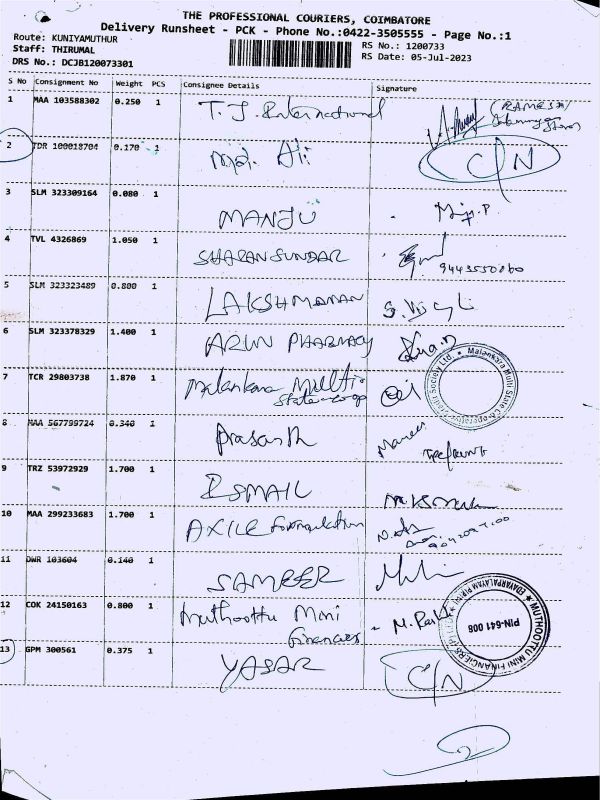 THE PROFESSIONAL COURIERS, COIMBATORE
Delivery Runsheet - PCK - Phone No.:0422-3505555 - Page No.:1
Route: KUNIYAMUTHUR
RS No.: 1200733
Staff: THIRUMAL
RS Date: 05-Jul-2023
DRS No.: DCJB120073301
S No Consignment No Weight PCS Consignee Details Signature
1 MAA 103588302 0.250 1 T. J. International (RAMESH)
2 TDR 100018704 0.170 1 Md. Ali C/N
3 SLM 323309164 0.080 1 MANJU
4 TVL 4326869 1.050 1 SHARAN SUNDAR
5 SLM 323323489 0.800 1 LAKSHMANAN
6 SLM 323378329 1.400 1 ARUN PHARMACY
7 TCR 29803738 1.870 1 Malankara Multi
State co-op
Malankara Multi State Co-operative Credit Society Ltd.
8 MAA 567799724 0.340 1 Prasanth
9 TRZ 53972929 1.700 1 ISMAIL
10 MAA 299233683 1.700 1 AXILE Formulation
11 DWR 103604 0.140 1 SAMEER
12 COK 24150163 0.800 1 Muthoottu Mini
Financiers
MUTHOOTTU MINI FINANCIERS
PIN-641 008
13 GPM 300561 0.375 1 YASAR C/N